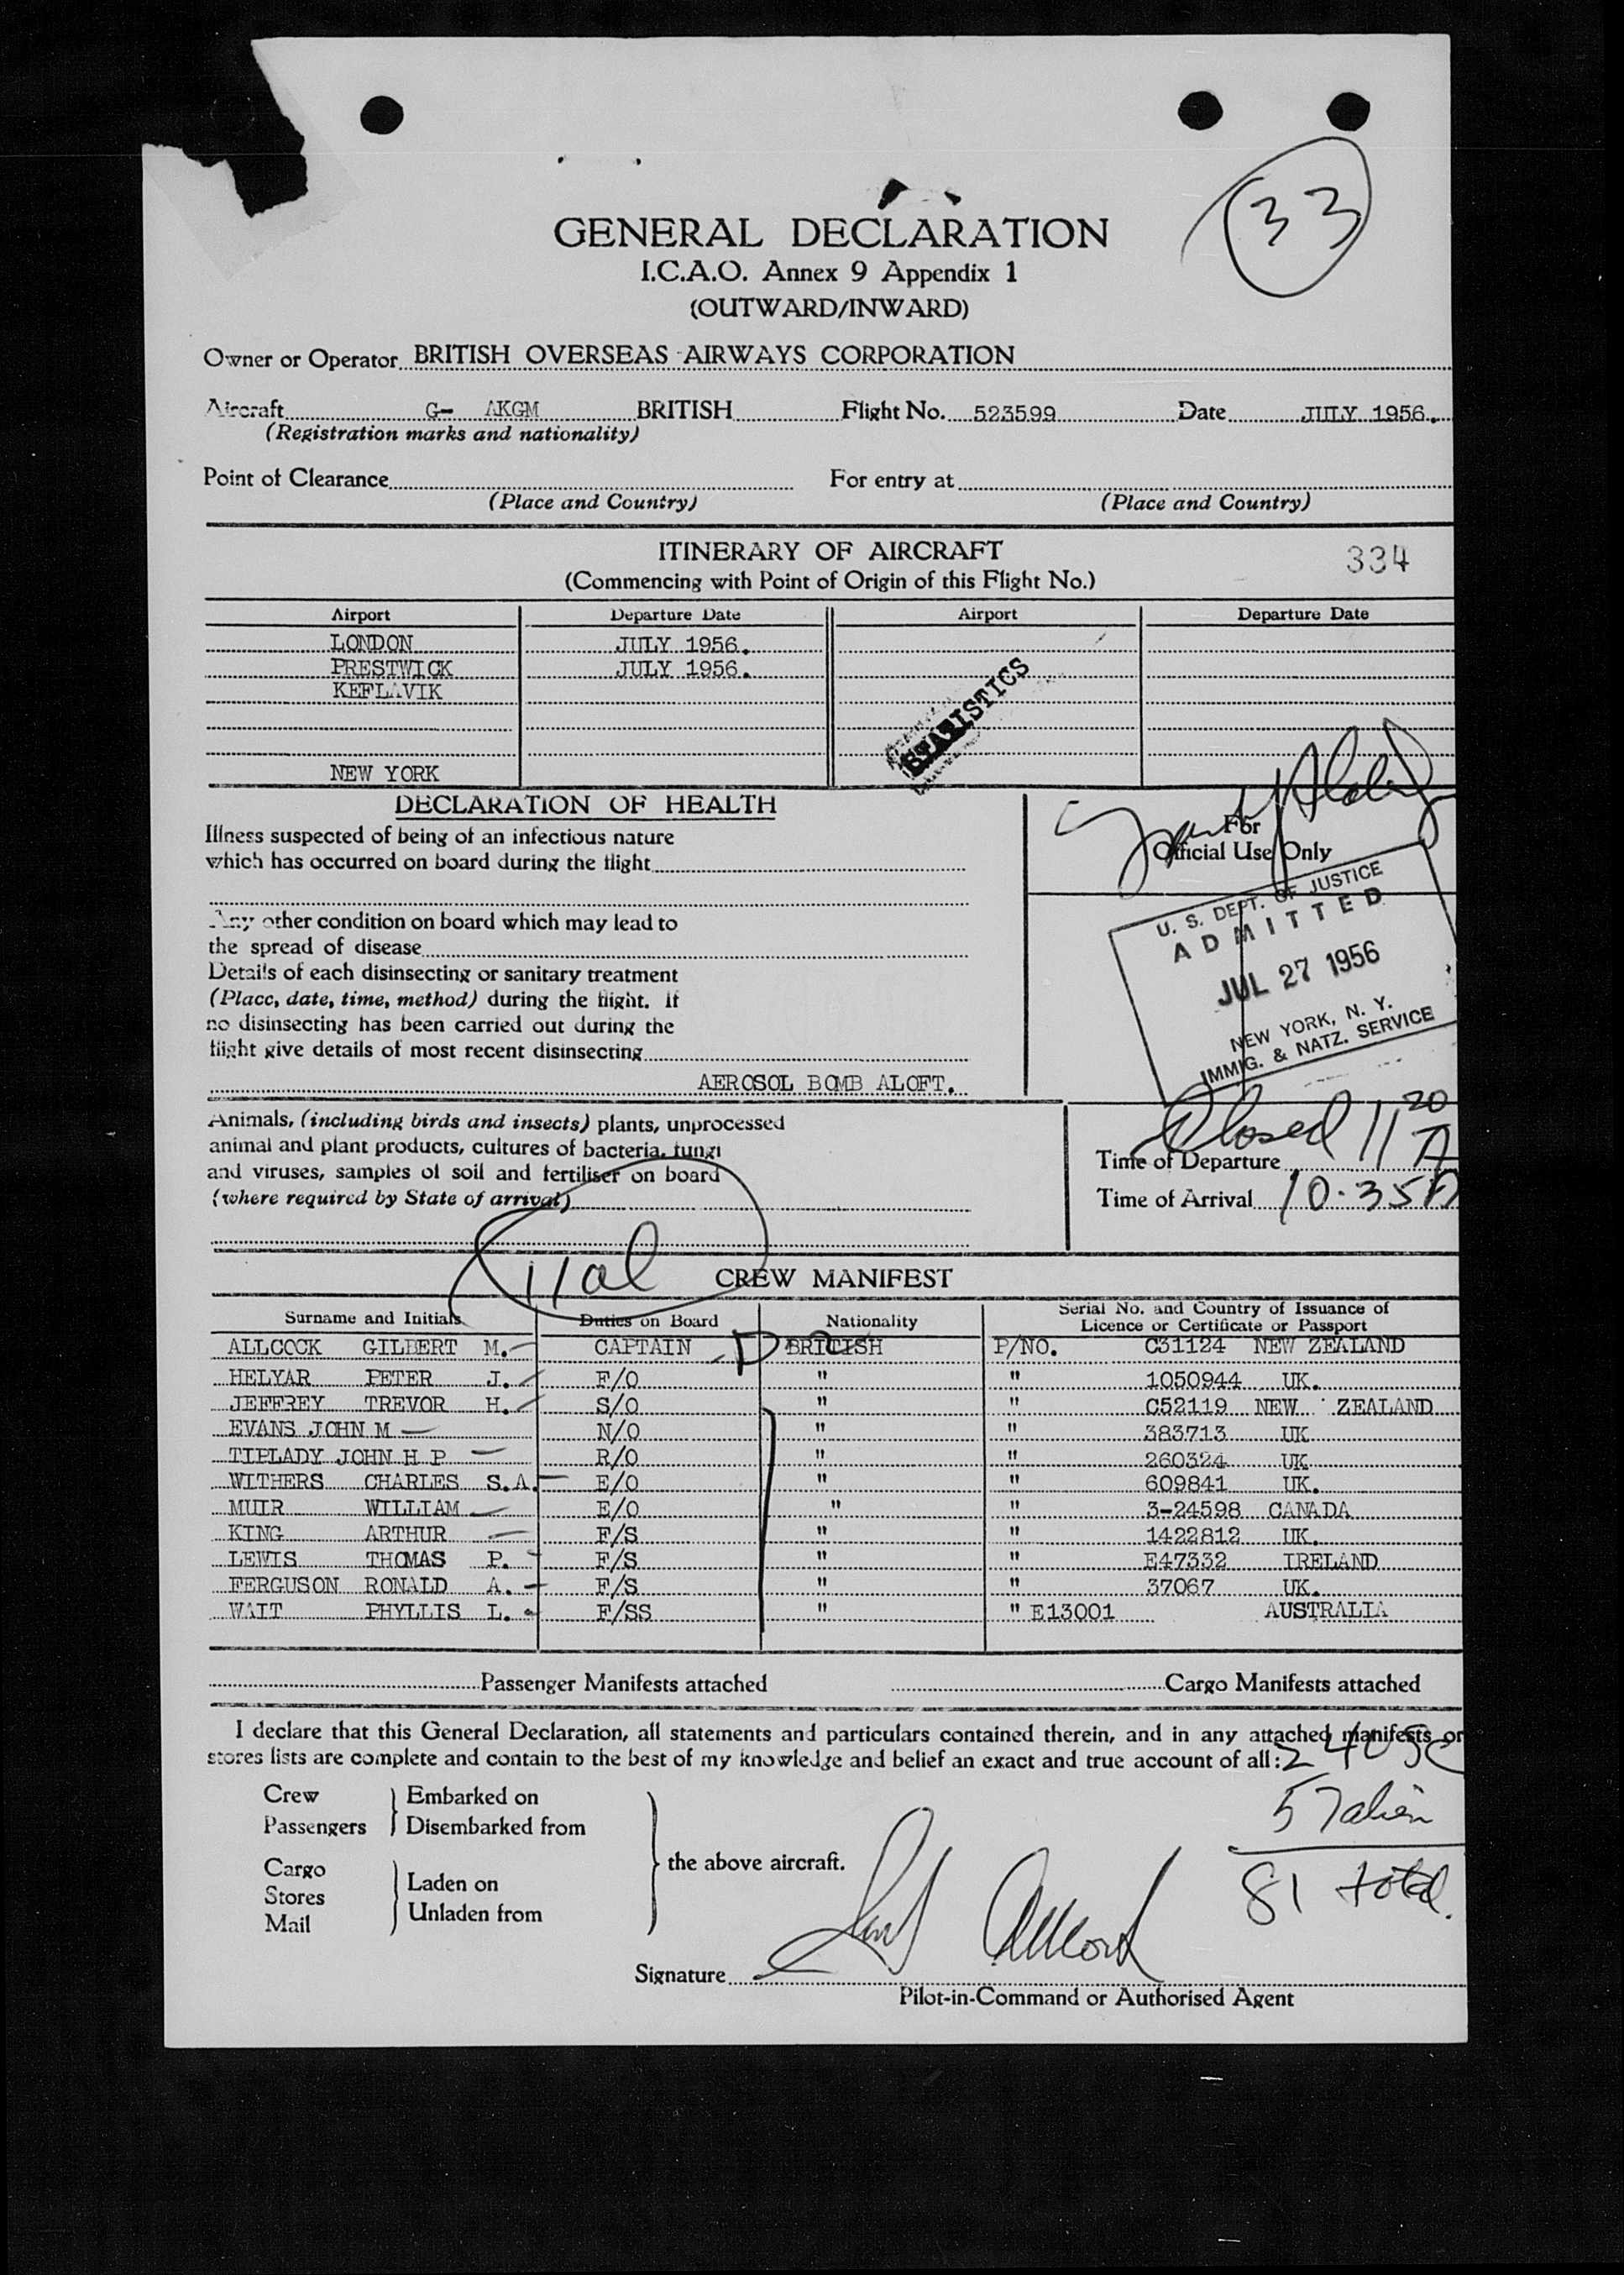 33
GENERAL DECLARATION
I.C.A.O. Annex 9 Appendix 1
(OUTWARD/INWARD)
Owner or Operator BRITISH OVERSEAS AIRWAYS CORPORATION
Aircraft G- AKGM BRITISH Flight No. 523599 Date JULY 1956.
(Registration marks and nationality)
Point of Clearance For entry at
(Place and Country) (Place and Country)
ITINERARY OF AIRCRAFT 334
(Commencing with Point of Origin of this Flight No.)
Airport Departure Date Airport Departure Date
LONDON JULY 1956.
PRESTWICK JULY 1956.
KEFLAVIK
STATISTICS
NEW YORK
DECLARATION OF HEALTH
Illness suspected of being of an infectious nature
which has occurred on board during the flight
For
Official Use Only
Any other condition on board which may lead to
the spread of disease
Details of each disinsecting or sanitary treatment
(Place, date, time, method) during the flight. If
no disinsecting has been carried out during the
flight give details of most recent disinsecting
AEROSOL BOMB ALOFT.
U. S. DEPT. OF JUSTICE
ADMITTED
JUL 27 1956
NEW YORK, N. Y.
IMMIG. & NATZ. SERVICE
Animals, (including birds and insects) plants, unprocessed
animal and plant products, cultures of bacteria, fungi
and viruses, samples of soil and fertiliser on board
(where required by State of arrival)
Closed 11 20 A
Time of Departure
Time of Arrival 10.35A
CREW MANIFEST
Surname and Initials Duties on Board Nationality Serial No. and Country of Issuance of
Licence or Certificate or Passport
ALLCOCK GILBERT M. CAPTAIN BRITISH P/NO. C31124 NEW ZEALAND
HELYAR PETER J. F/O " " 1050944 UK.
JEFFREY TREVOR H. S/O " " C52119 NEW ZEALAND
EVANS JOHN M N/O " " 383713 UK
TIPLADY JOHN H P R/O " " 260324 UK
WITHERS CHARLES S.A. E/O " " 609841 UK.
MUIR WILLIAM E/O " " 3-24598 CANADA
KING ARTHUR F/S " " 1422812 UK.
LEWIS THOMAS P. F/S " " E47332 IRELAND
FERGUSON RONALD A. F/S " " 37067 UK.
WAIT PHYLLIS L. F/SS " " E13001 AUSTRALIA
Passenger Manifests attached Cargo Manifests attached
I declare that this General Declaration, all statements and particulars contained therein, and in any attached manifests or
stores lists are complete and contain to the best of my knowledge and belief an exact and true account of all:
24 USC
57 alien
81 total.
Crew Embarked on
Passengers Disembarked from
the above aircraft.
Cargo Laden on
Stores
Mail Unladen from
Signature
Pilot-in-Command or Authorised Agent